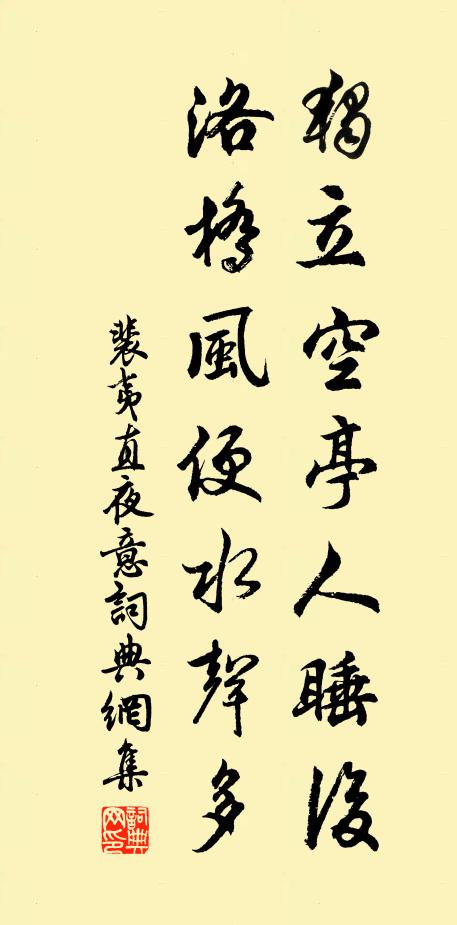 獨立空亭人睡後
洛橋風便水聲多
裴夷直夜意詞典網集
詞典網印